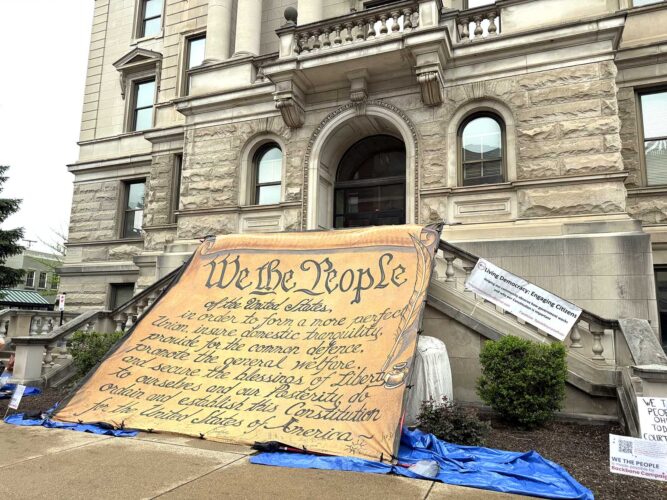 We the People
of the United States,
in order to form a more perfect
Union, insure domestic tranquility,
provide for the common defence,
promote the general welfare,
and secure the blessings of Liberty
to ourselves and our Posterity do
ordain and establish this Constitution
for the United States of America
Living Democracy: Engaging Citizens
WE T
PEOP
SH
TOD
COURT
WE THE PEOPLE
Backbone Campaign